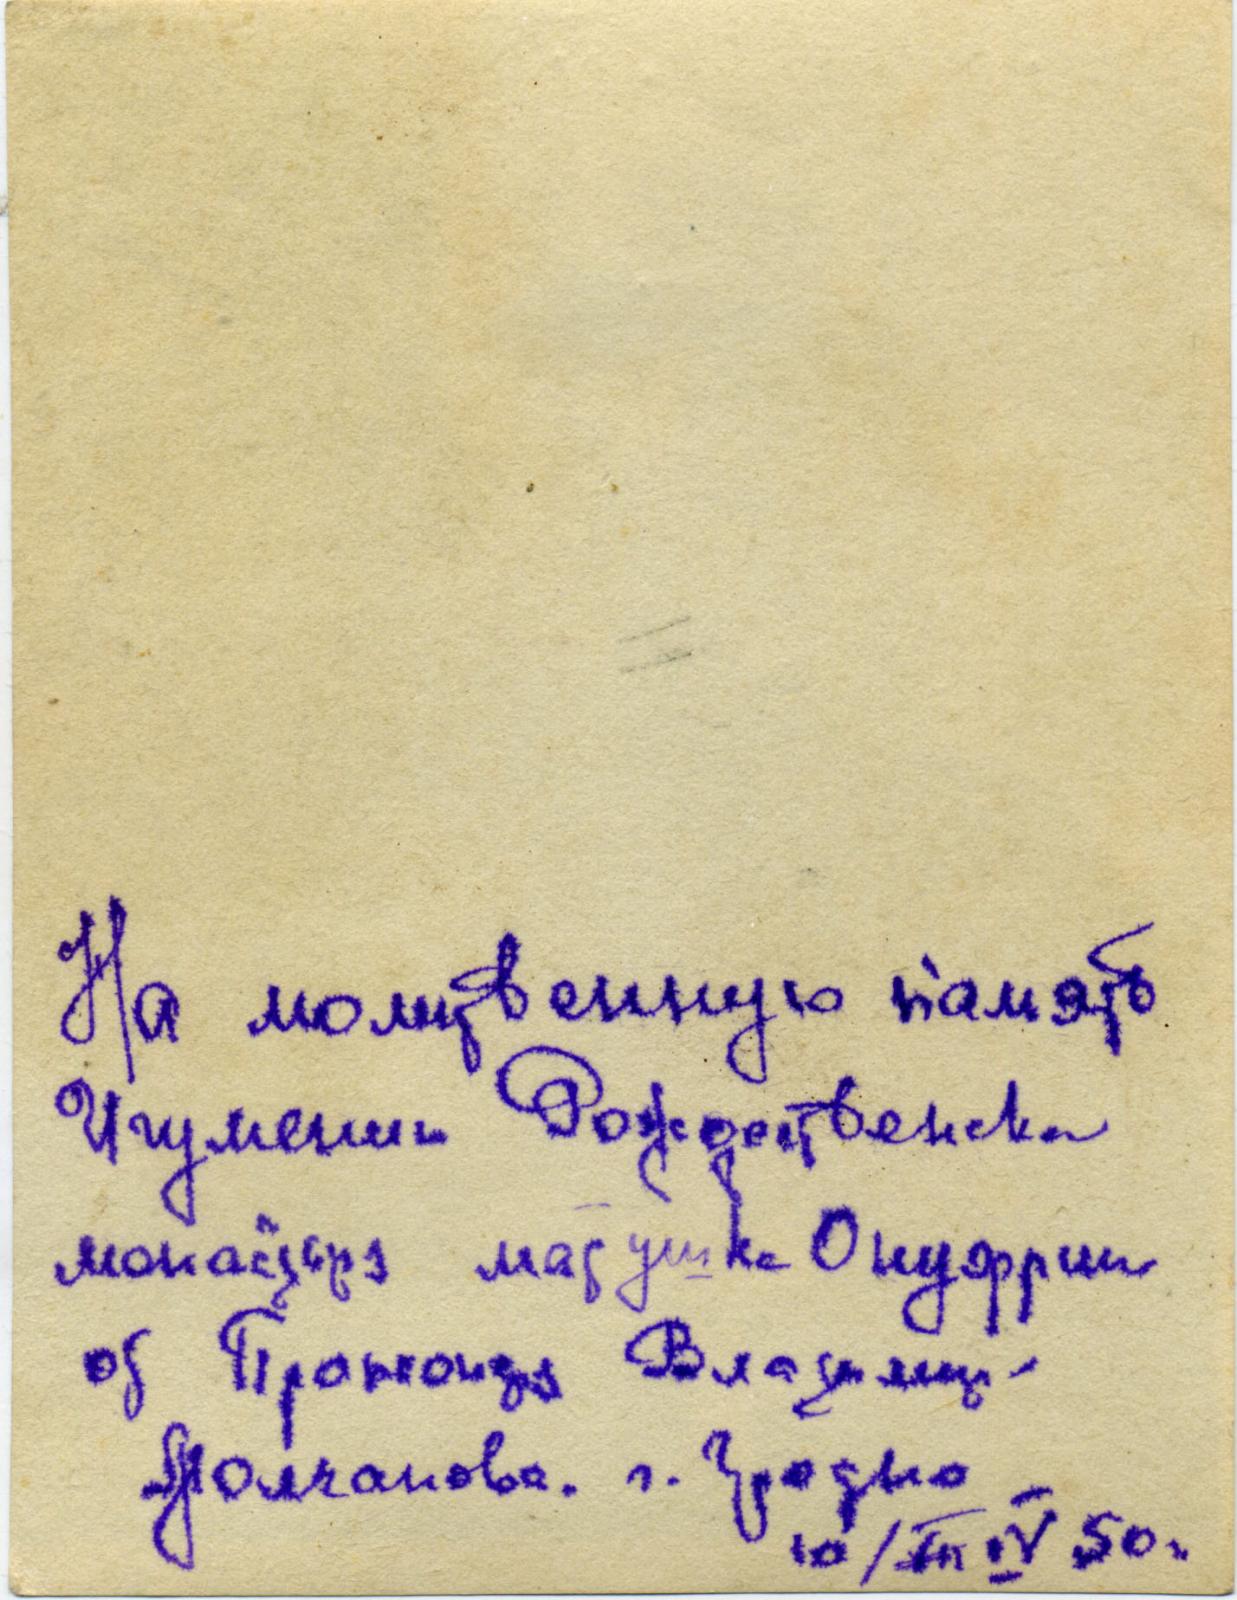 На молитвенную память
Игумении Рождественска
монастыря матушке Онуфрии
от Протоиерея Владимир
Молчанова. г. Гродно
10/III IV 50 г.